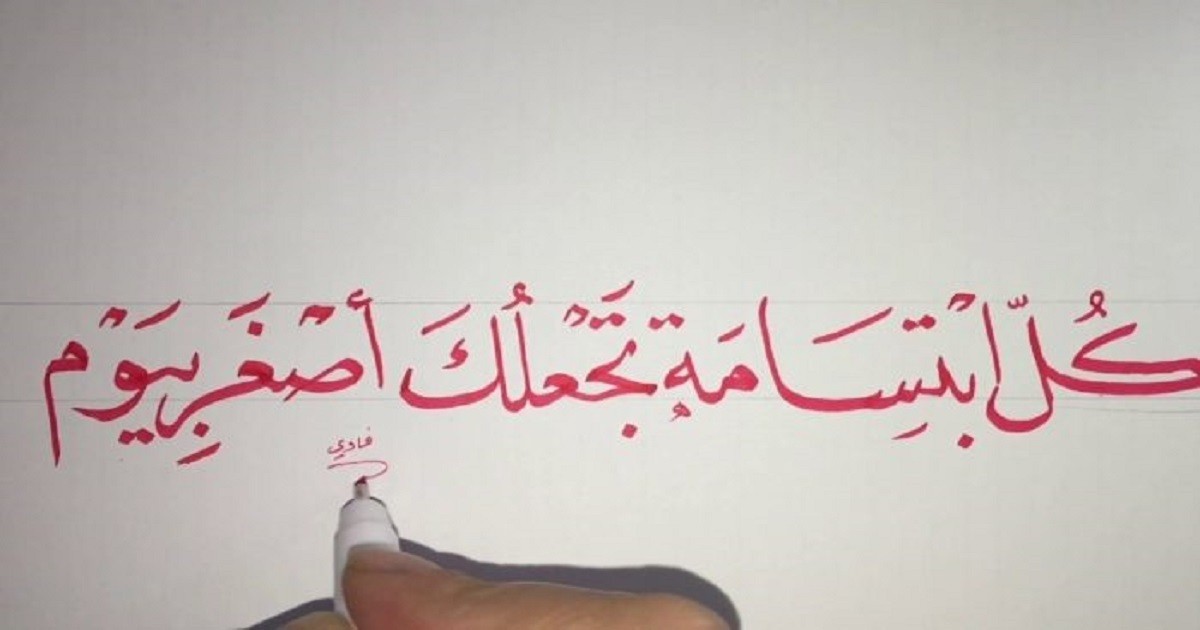 كُلّ ابْتِسَامَةٍ تَجْعَلُكَ أصْغَرَ بِيَوْم
فادي